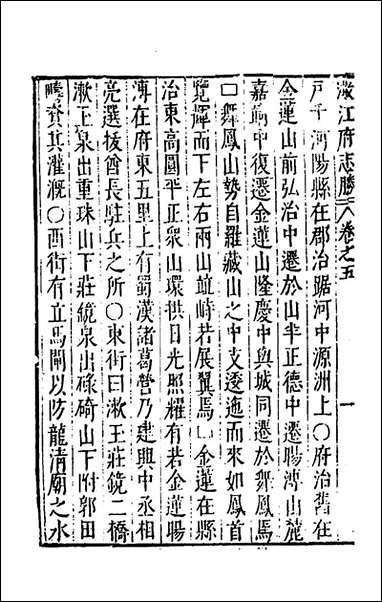 澂江府志勝 卷之五 一
戸千河陽縣在郡治踞河中源洲上〇府治舊在
金蓮山前弘治中遷於山半正德中遷暘溥山麓
嘉靖中復遷金蓮山隆慶中與城同遷於舞鳳焉
口舞鳳山勢自羅藏山之中支逶迤而來如鳳首
覽輝而下左右兩山竝峙若展翼焉〇金蓮在縣
治東高圓平正衆山環拱日光照耀有若金蓮暘
溥在府東五里上有蜀漢諸葛營乃建興中丞相
亮選拔酋長駐兵之所〇東街曰漱玉莊鏡二橋
漱玉泉出重珠山下莊鏡泉出碌碕山下附郭田
疇資其灌溉〇西街有立馬閘以防龍清廟之水